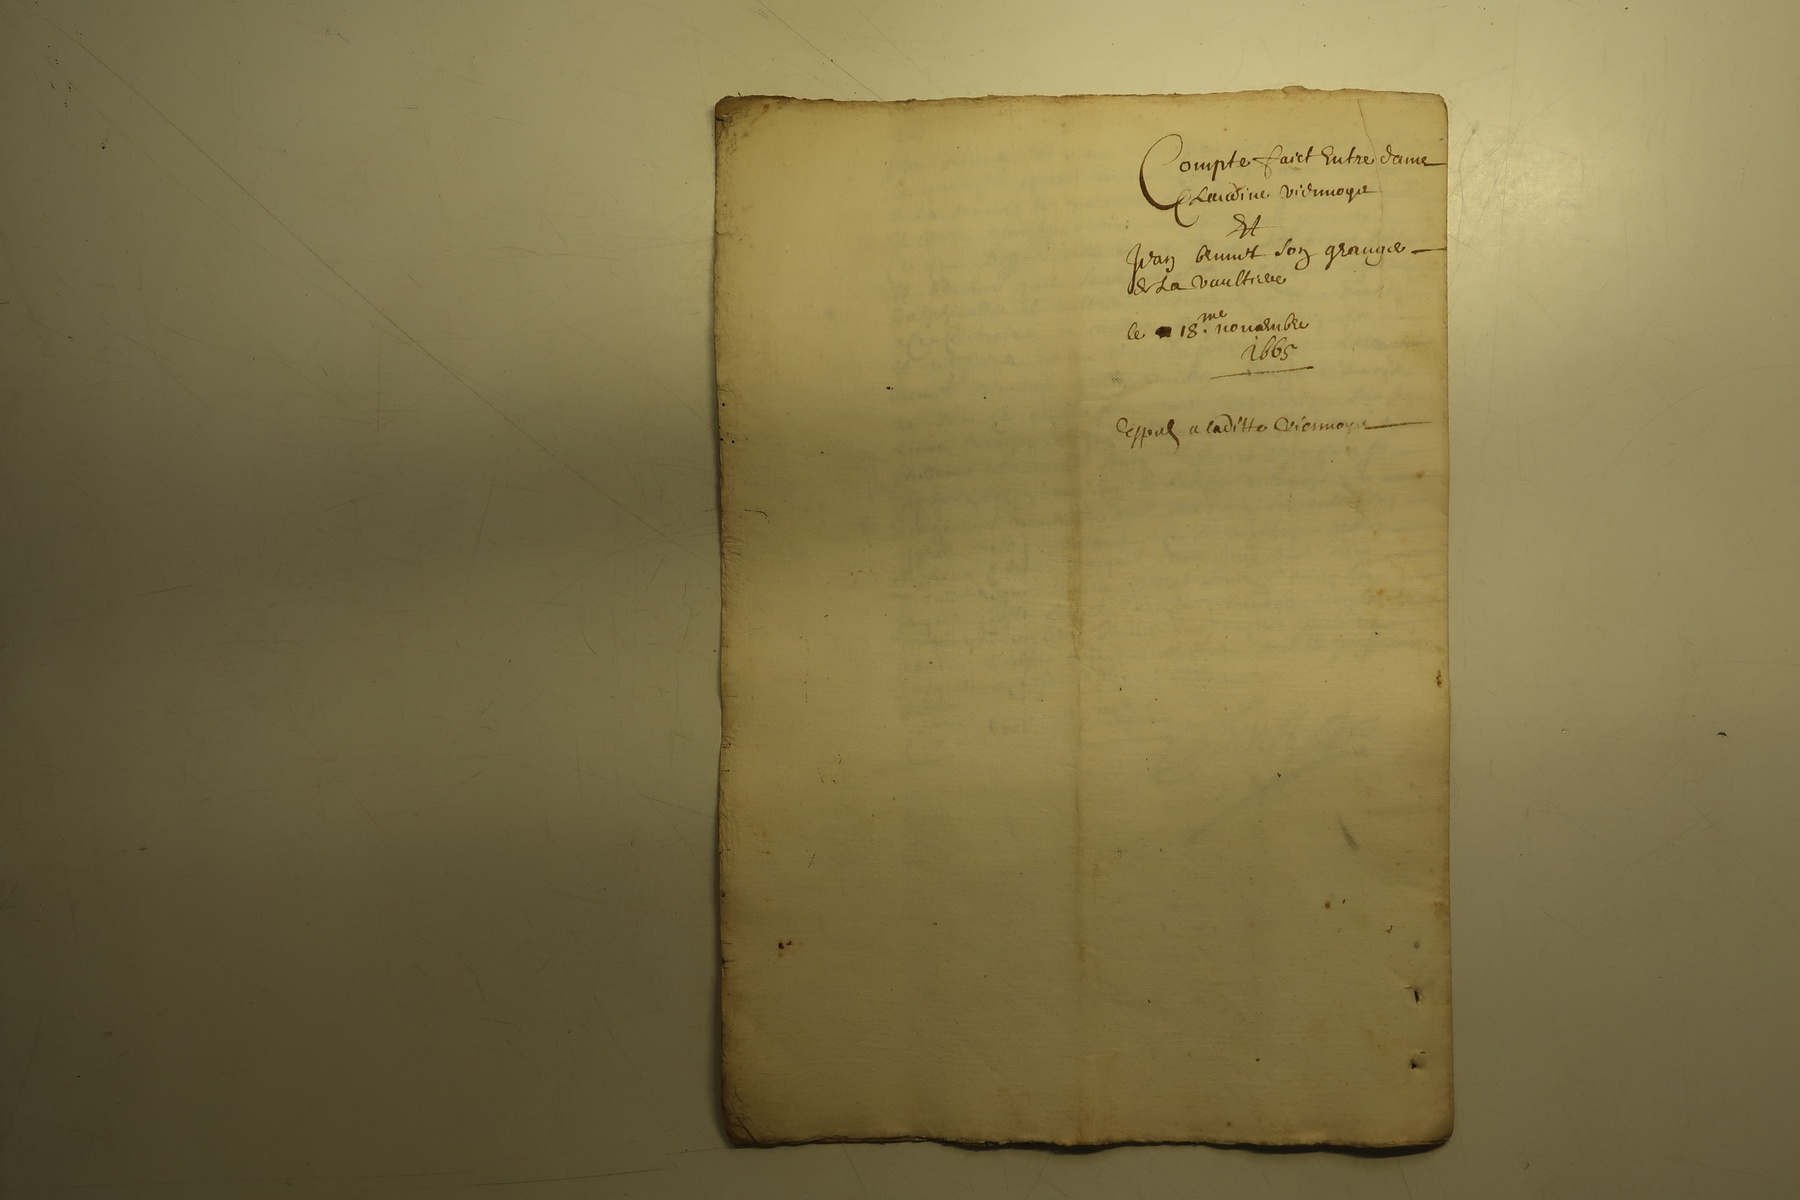 Compte faict Entre dame
Claudine viennoys
Et
Jean benoist son granger
de La vaultiere
le 18.me nouembre
1665
a laditte Viennoys